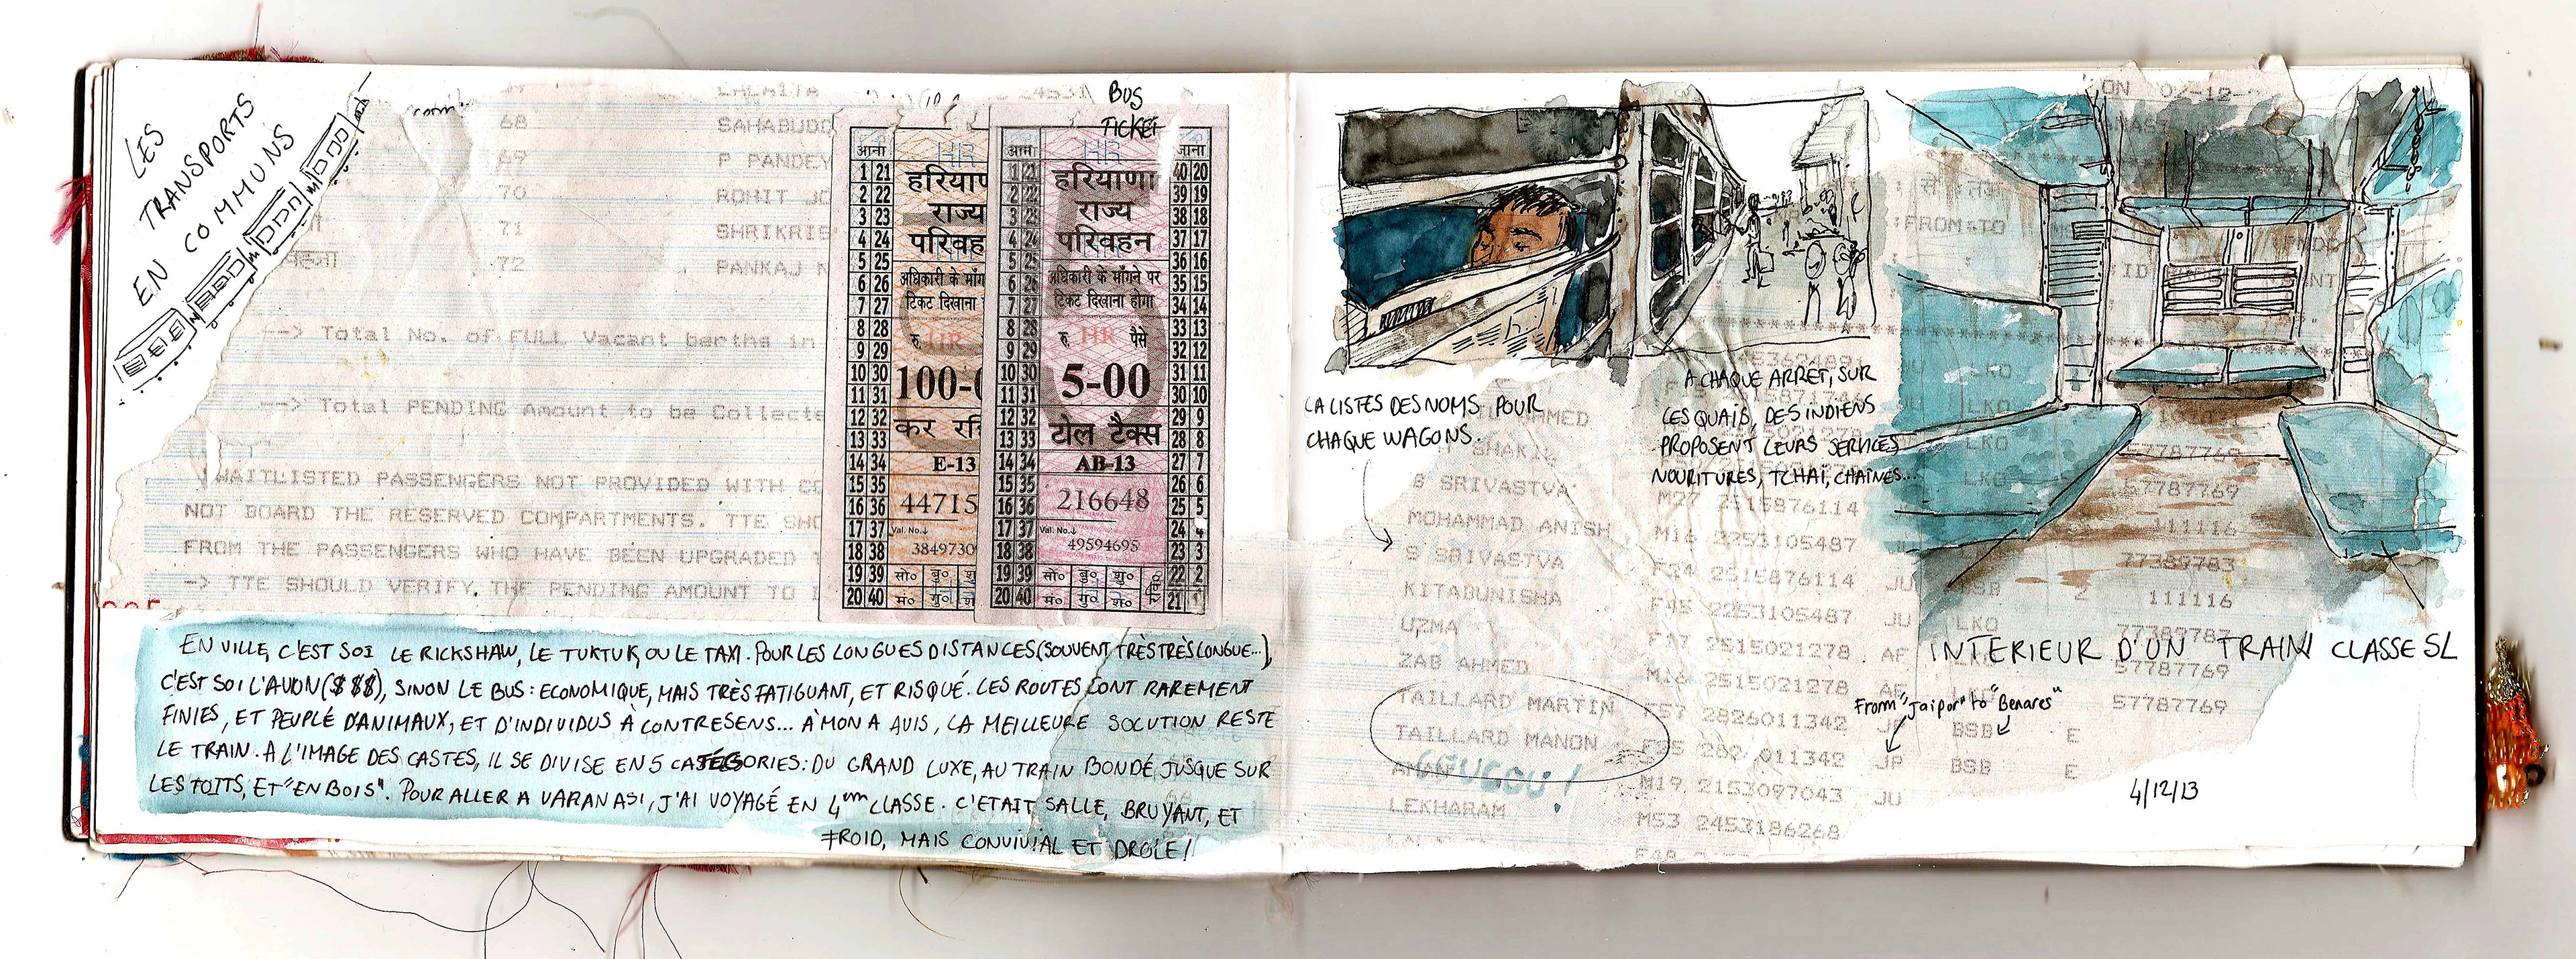 LES
TRANSPORTS
EN COMMUNS
68 SAHABUDD
69 P PANDEY
70 ROHIT JO
71 SHRIKRIS
72 PANKAJ
--> Total No. of FULL Vacant berths in
--> Total PENDING Amount to be Collecte
WAITLISTED PASSENGERS NOT PROVIDED WITH
NOT BOARD THE RESERVED COMPARTMENTS. TTE SHO
FROM THE PASSENGERS WHO HAVE BEEN UPGRADED
-> TTE SHOULD VERIFY THE PENDING AMOUNT TO
BUS
TICKET
आना
HR
हरियाण
राज्य
परिवह
अधिकारी के माँग
टिकट दिखाना
रु. HR
100-0
कर रि
E-13
44715
Val. No.↓
3849730
सो० बु० शु
मं० गु० श
1 21
2 22
3 23
4 24
5 25
6 26
7 27
8 28
9 29
10 30
11 31
12 32
13 33
14 34
15 35
16 36
17 37
18 38
19 39
20 40
आना
जाना
HR
हरियाणा
राज्य
परिवहन
अधिकारी के माँगने पर
टिकट दिखाना होगा
रु. HR पैसे
5-00
टोल टैक्स
AB-13
216648
Val. No.↓
49594695
सो० बु० शु०
मं० गु० श०
1 21
2 22
3 23
4 24
5 25
6 26
7 27
8 28
9 29
10 30
11 31
12 32
13 33
14 34
15 35
16 36
17 37
18 38
19 39
20 40
40 20
39 19
38 18
37 17
36 16
35 15
34 14
33 13
32 12
31 11
30 10
29 9
28 8
27 7
26 6
25 5
24 4
23 3
22 2
21 1
EN VILLE, C'EST SOI LE RICKSHAW, LE TUKTUK, OU LE TAXI. POUR LES LONGUES DISTANCES (SOUVENT TRÈS TRÈS LONGUE...),
C'EST SOI L'AVION ($$$), SINON LE BUS : ECONOMIQUE, MAIS TRÈS FATIGUANT, ET RISQUÉ. LES ROUTES SONT RAREMENT
FINIES, ET PEUPLÉ D'ANIMAUX, ET D'INDIVIDUS À CONTRESENS... À MON A AVIS, LA MEILLEURE SOLUTION RESTE
LE TRAIN. A L'IMAGE DES CASTES, IL SE DIVISE EN 5 CATÉGORIES : DU GRAND LUXE, AU TRAIN BONDÉ JUSQUE SUR
LES TOITS, ET "EN BOIS". POUR ALLER A VARANASI, J'AI VOYAGÉ EN 4em CLASSE. C'ETAIT SALLE, BRUYANT, ET
FROID, MAIS CONVIVIAL ET DROLE !
LA LISTES DES NOMS POUR
CHAQUE WAGONS.
A CHAQUE ARRÊT, SUR
LES QUAIS, DES INDIENS
PROPOSENT LEURS SERVICES
NOURITURES, TCHAÏ, CHAÎNES...
ON
:FROM-TO
LKO
LKO
LKO
LKO
57787769
57787769
111116
77389783
111116
77389787
57787769
57787769
SHAKIL
S SRIVASTVA M27 2515876114
MOHAMMAD ANISH M16 2253105487
S SRIVASTVA F24 2515876114 JU
KITABUNISHA F45 2253105487 JU LKO
UZMA F17 2515021278 AF
ZAB AHMED M16 2515021278 AF
TAILLARD MARTIN F57 2826011342 JP BSB E
TAILLARD MANON JP BSB E
M19 2153097043 JU
LEKHARAM M53 2453186268
INTERIEUR D'UN TRAIN CLASSE SL
From "Jaipor" to "Benares"
4/12/13